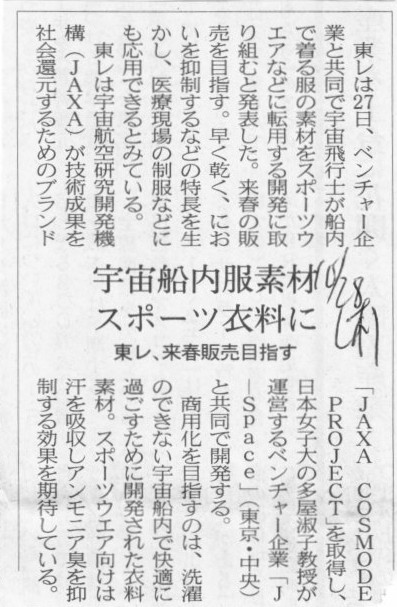 宇宙船内服素材
スポーツ衣料に
東レ、来春販売目指す
10/28
東レは27日、ベンチャー企
業と共同で宇宙飛行士が船内
で着る服の素材をスポーツウ
エアなどに転用する開発に取
り組むと発表した。来春の販
売を目指す。早く乾く、にお
いを抑制するなどの特長を生
かし、医療現場の制服などに
も応用できるとみている。
東レは宇宙航空研究開発機
構（JAXA）が技術成果を
社会還元するためのブランド
「JAXA COSMODE
PROJECT」を取得し、
日本女子大の多屋淑子教授が
運営するベンチャー企業「J
―Space」（東京・中央）
と共同で開発する。
商用化を目指すのは、洗濯
のできない宇宙船内で快適に
過ごすために開発された衣料
素材。スポーツウエア向けは
汗を吸収しアンモニア臭を抑
制する効果を期待している。